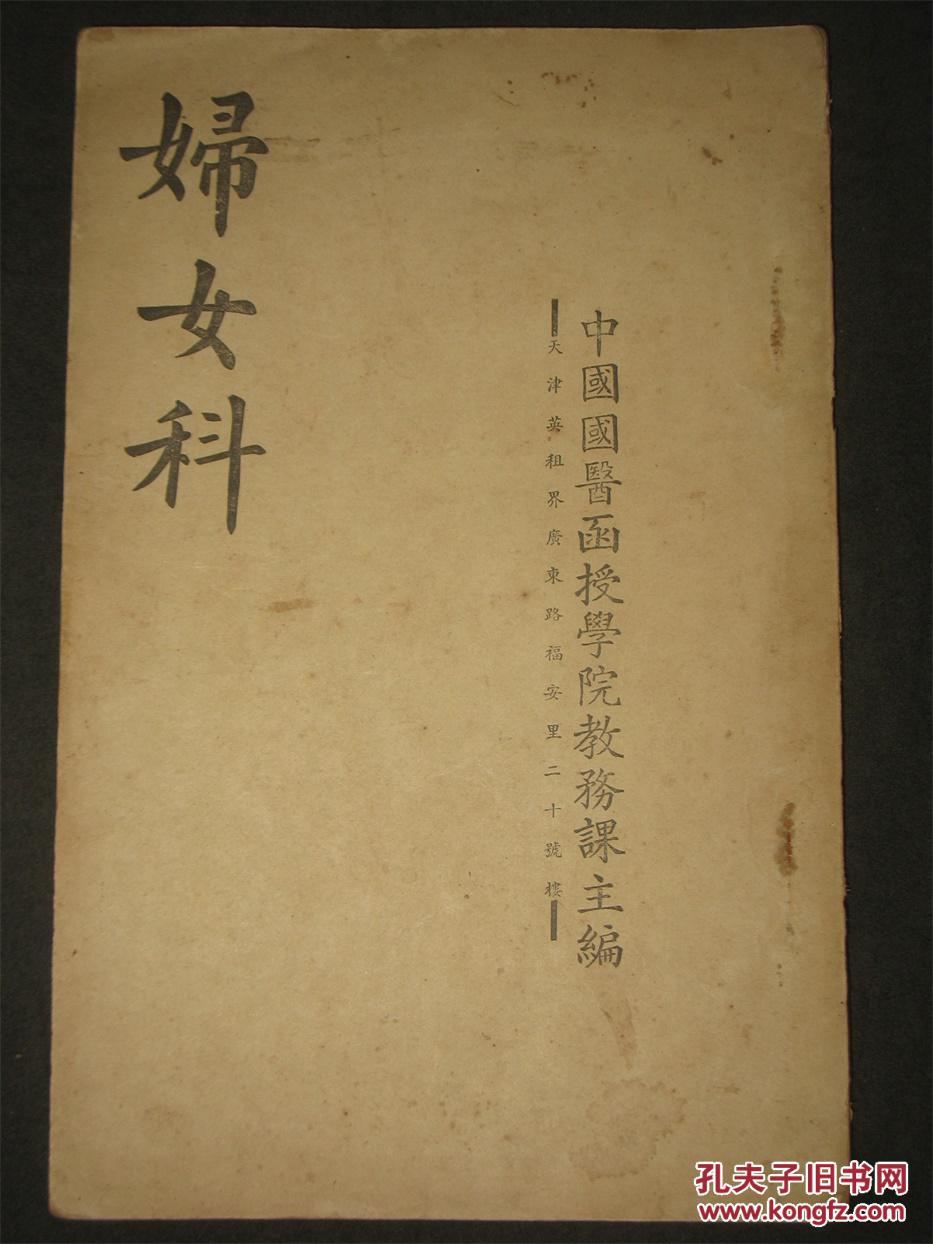 中國國醫函授學院教務課主編
天津英租界廣東路福安里二十號樓
婦女科
孔夫子旧书网
www.kongfz.com